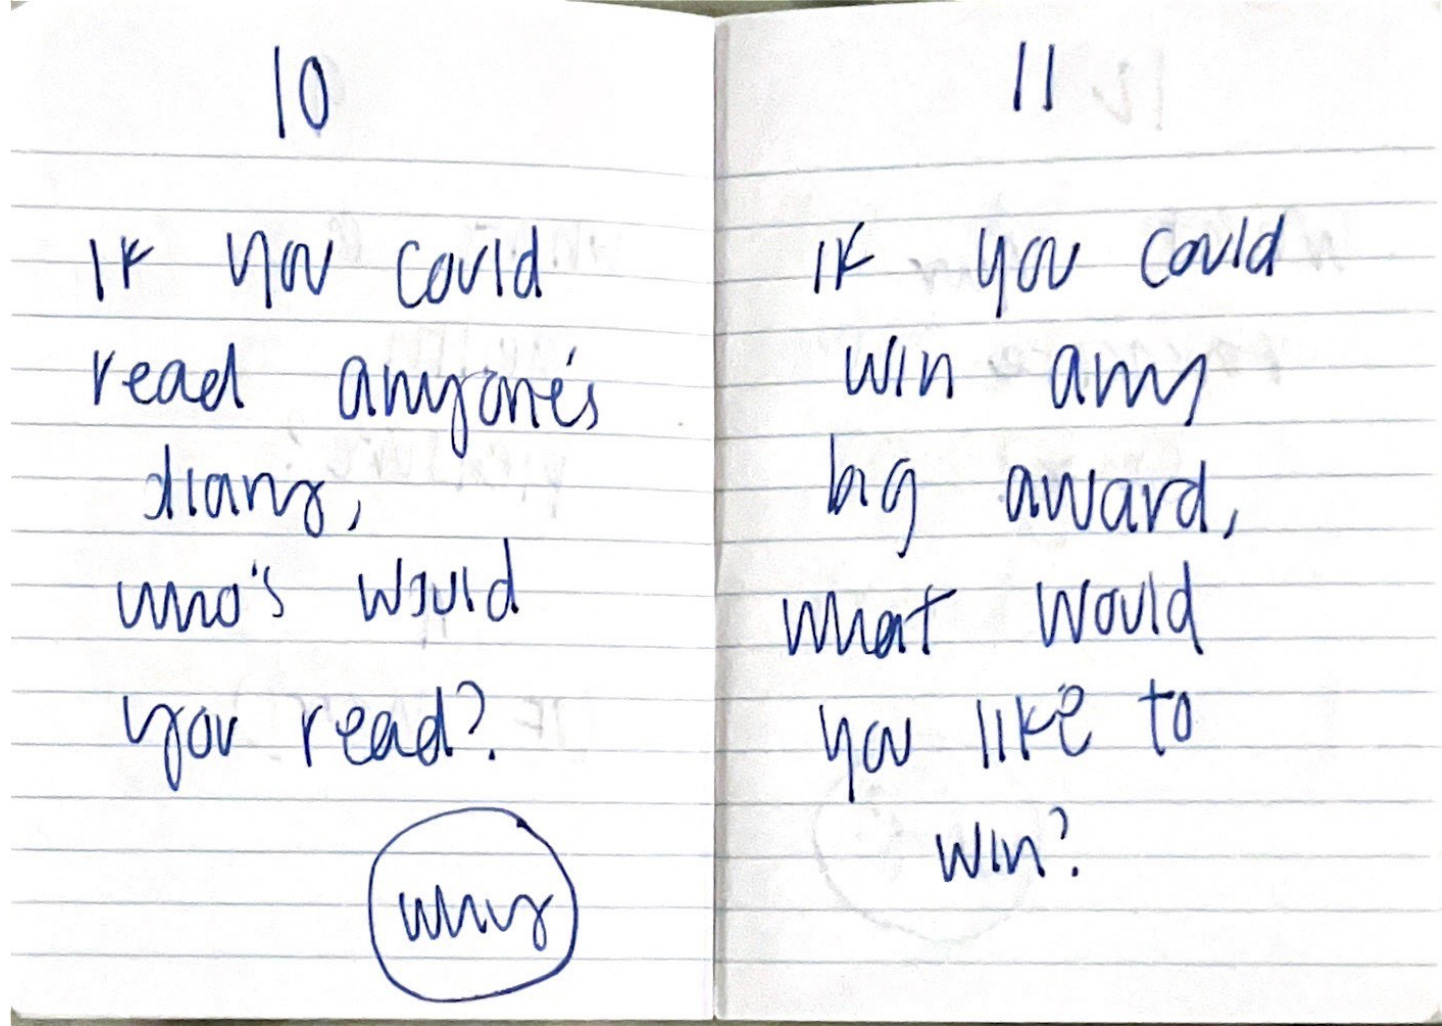 10
If you could
read anyone's
diary,
who's would
you read?
why
11
If you could
win any
big award,
what would
you like to
win?